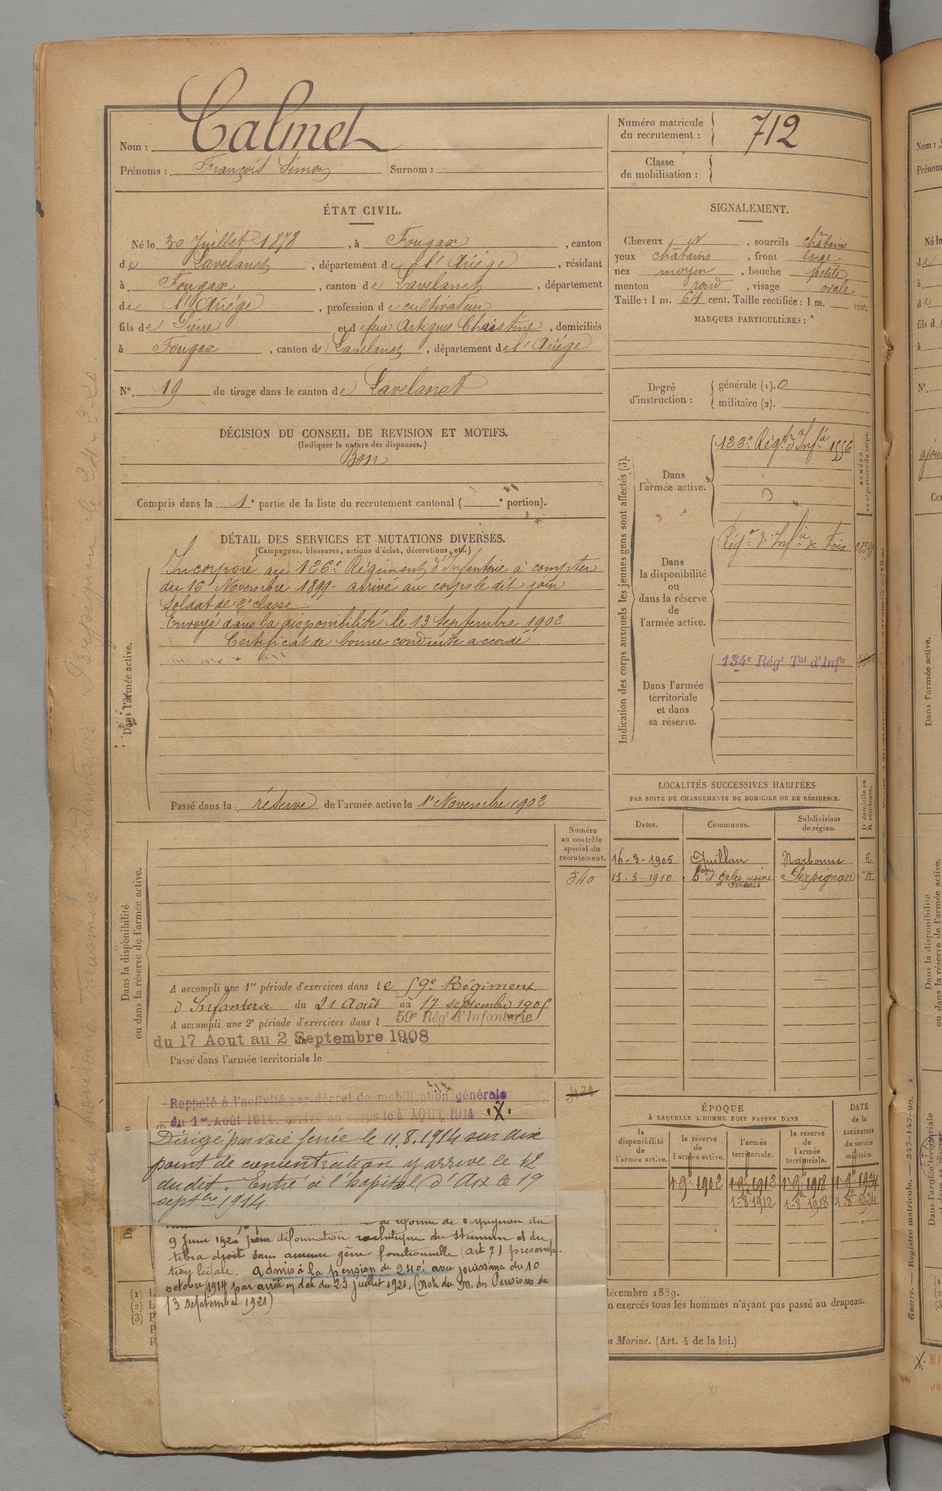 Nom : Calmet
Prénoms : François Simon Surnom :
Numéro matricule du recrutement : 712
Classe de mobilisation :
ÉTAT CIVIL.
Né le 30 Juillet 1878, à Fougax, canton
de Lavelanet, département de l'Ariège, résidant
à Fougax, canton de Lavelanet, département
de l'Ariège, profession de cultivateur
fils de Pierre et de feue Artigues Christine, domiciliés
à Fougax, canton de Lavelanet, département de l'Ariège
N° 19 de tirage dans le canton de Lavelanet
SIGNALEMENT.
Cheveux et, sourcils châtains
yeux châtains, front large
nez moyen, bouche petite
menton rond, visage ovale
Taille : 1 m. 64 cent. Taille rectifiée : 1 m. cent.
MARQUES PARTICULIÈRES :
Degré d'instruction : générale (1). 0
militaire (2).
DÉCISION DU CONSEIL DE REVISION ET MOTIFS.
(Indiquer la nature des dispenses.)
Bon
Compris dans la 1e partie de la liste du recrutement cantonal ( e portion).
DÉTAIL DES SERVICES ET MUTATIONS DIVERSES.
(Campagnes, blessures, actions d'éclat, décorations, etc.)
Dans l'armée active.
Incorporé au 126e Régiment d'Infanterie à compter
du 16 Novembre 1899. arrivé au corps le dit jour
Soldat de 2e classe
Envoyé dans la disponibilité le 13 septembre 1902
Certificat de bonne conduite accordé
Passé dans la réserve de l'armée active le 1er Novembre 1902
Indication des corps auxquels les jeunes gens sont affectés (3).
Dans l'armée active.
126e Régt d'Infie 1556
Dans la disponibilité ou dans la réserve de l'armée active.
Régt d'Infie de Foix
Dans l'armée territoriale et dans sa réserve.
134e Régt Tal d'Infie
LOCALITÉS SUCCESSIVES HABITÉES
PAR SUITE DE CHANGEMENTS DE DOMICILE OU DE RÉSIDENCE.
Dates. Communes. Subdivisions de région. D domicile ou R résidence.
16-3-1906 Quillan Narbonne R
13-3-1910 Perpignan
Dans la disponibilité ou dans la réserve de l'armée active.
Numéro au contrôle spécial du recrutement.
340
A accompli une 1re période d'exercices dans le 59e Régiment
d'Infanterie du 21 Août au 17 septembre 1905
A accompli une 2e période d'exercices dans l 59e Rég d'Infanterie
du 17 Aout au 2 Septembre 1908
Passé dans l'armée territoriale le
Rappelé à l'activité par décret de mobilisation générale
du 1er Août 1914. arrivé au corps le 4 AOUT 1914
Dirigé par voie ferrée le 11.8.1914 sur un
point de concentration y arrive le 12
dudit. Entré à l'hôpital d'Aix le 19
septbre 1914.
de réforme de Perpignan du
9 Juin 1920 pour déformation rachitique du sternum et du
tibia droit sans aucune gêne fonctionnelle (art 71 présomp-
tion légale. Admis à la pension de 240f avec jouissance du 10
octobre 1914 par arrêté en date du 23 juillet 1921. (Not. du M. des Pensions du
13 septembre 1921)
ÉPOQUE
À LAQUELLE L'HOMME DOIT PASSER DANS
la disponibilité de l'armée active. la réserve de l'armée active. l'armée territoriale. la réserve de l'armée territoriale.
DATE de la LIBÉRATION du service militaire.
1-9e 1902 1-9e 1912 1-9e 1918 1-9e 1924
1-8e 1912 1-8e 1918 1-8e 1924
décembre 1889.
n exercés tous les hommes n'ayant pas passé au drapeau.
a Marine. (Art. 4 de la loi.)
Guerre. — Registre matricule. — 247-147-98.